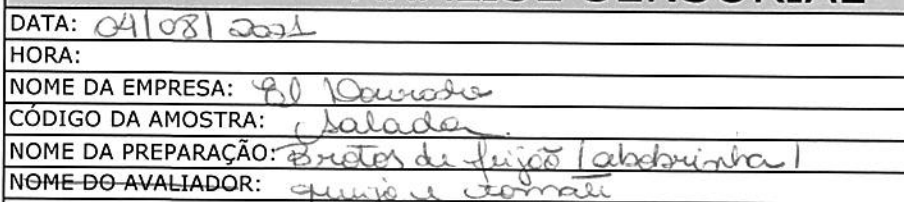 ANÁLISE SENSORIAL
DATA: 04/08/2021
HORA:
NOME DA EMPRESA: El Dourado
CÓDIGO DA AMOSTRA: Salada
NOME DA PREPARAÇÃO: Brotos de feijão / abobrinha /
NOME DO AVALIADOR: queijo e tomate